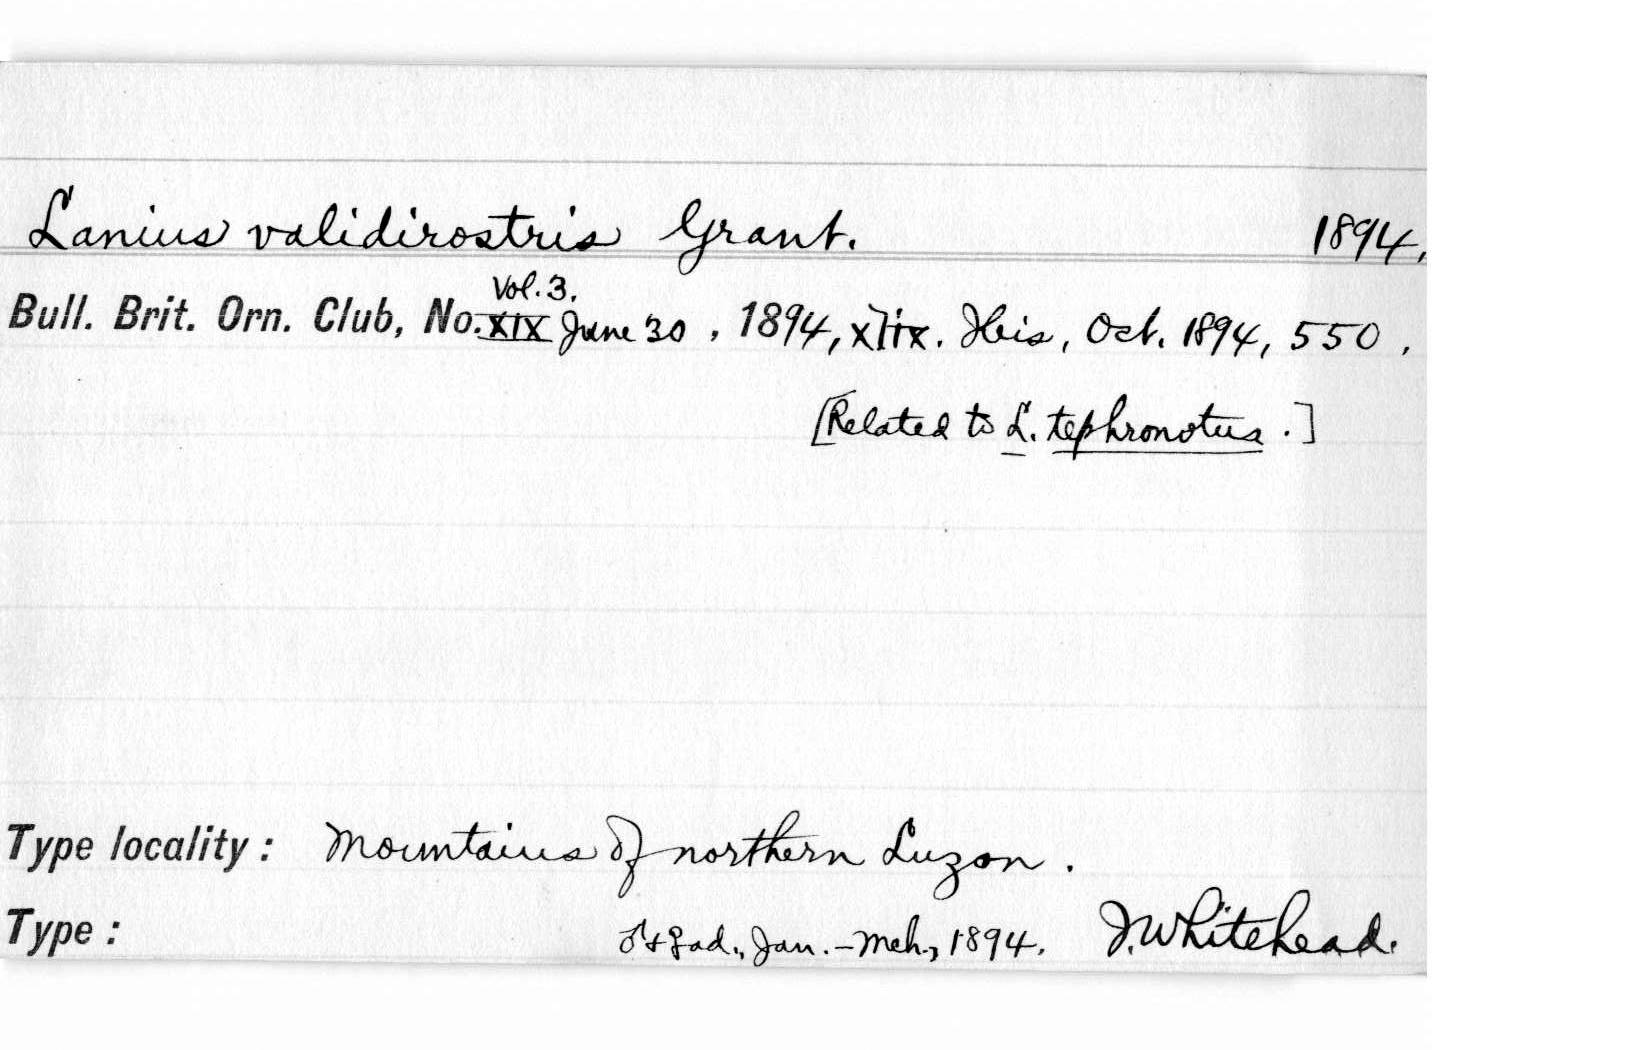 Lanius validirostris Grant. 1894,
Vol. 3.
Bull. Brit. Orn. Club, No. XIX June 30, 1894, xlix. Ibis, Oct. 1894, 550.
[Related to L. tephronotus.]
Type locality: Mountains of northern Luzon.
Type: ♂ + ♀ ad., Jan. - Mch., 1894. J. Whitehead.